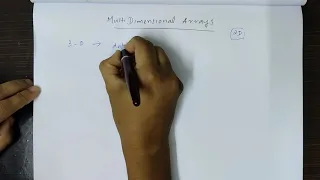 Multi Dimensional Arrays
2D
3-D →